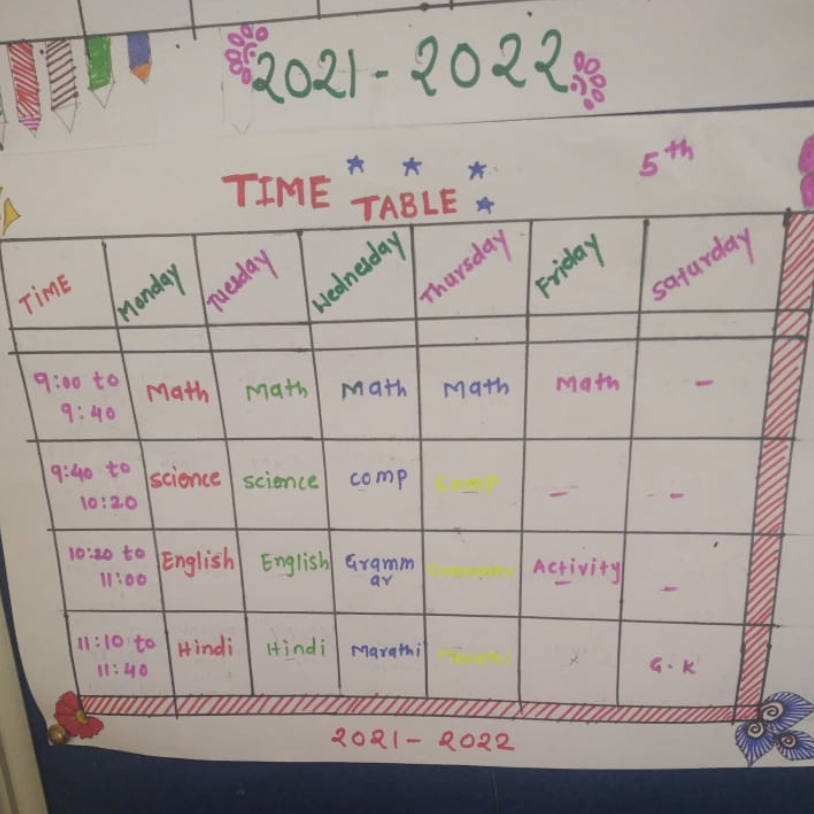 2021-2022
5th
TIME TABLE
TIME Monday Tuesday Wednesday Thursday Friday Saturday
9:00 to 9:40 Math Math Math Math Math -
9:40 to 10:20 Science Science Comp Comp - -
10:20 to 11:00 English English Gramm ar Grammar Activity -
11:10 to 11:40 Hindi Hindi Marathi Marathi x G.K
2021-2022